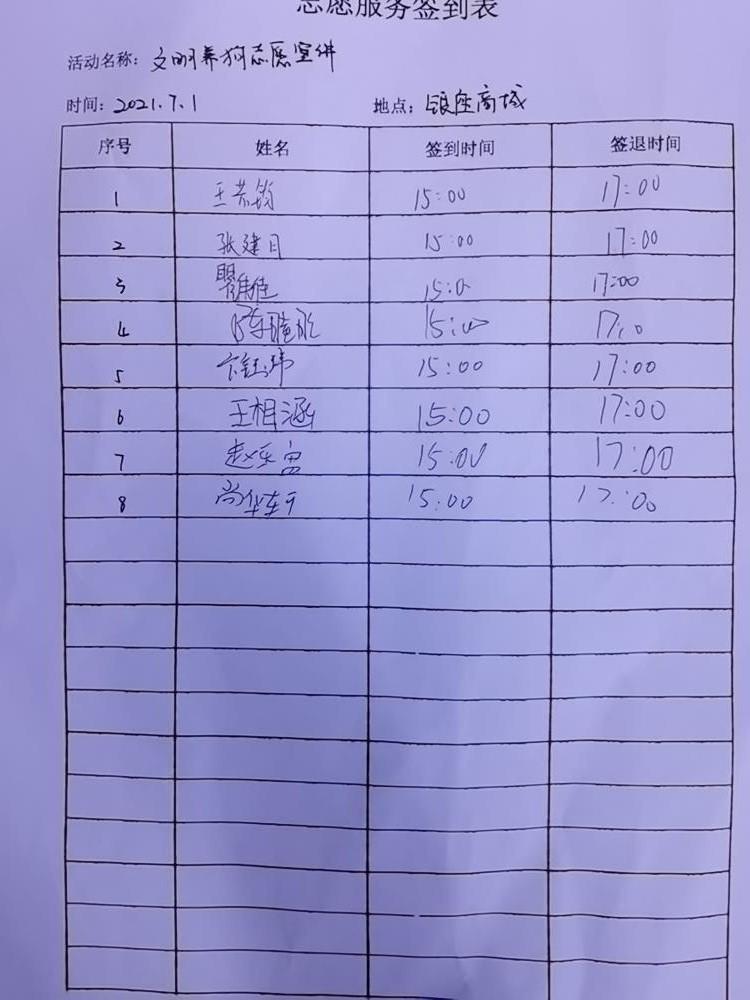 志愿服务签到表
活动名称：文明养狗志愿宣传
时间：2021.7.1 地点：银座商城
序号 姓名 签到时间 签退时间
1 15:00 17:00
2 张建日 15:00 17:00
3 15:0 17:00
4 15:00 17:0
5 15:00 17:00
6 王相涵 15:00 17:00
7 赵乐 15:00 17:00
8 15:00 17:00